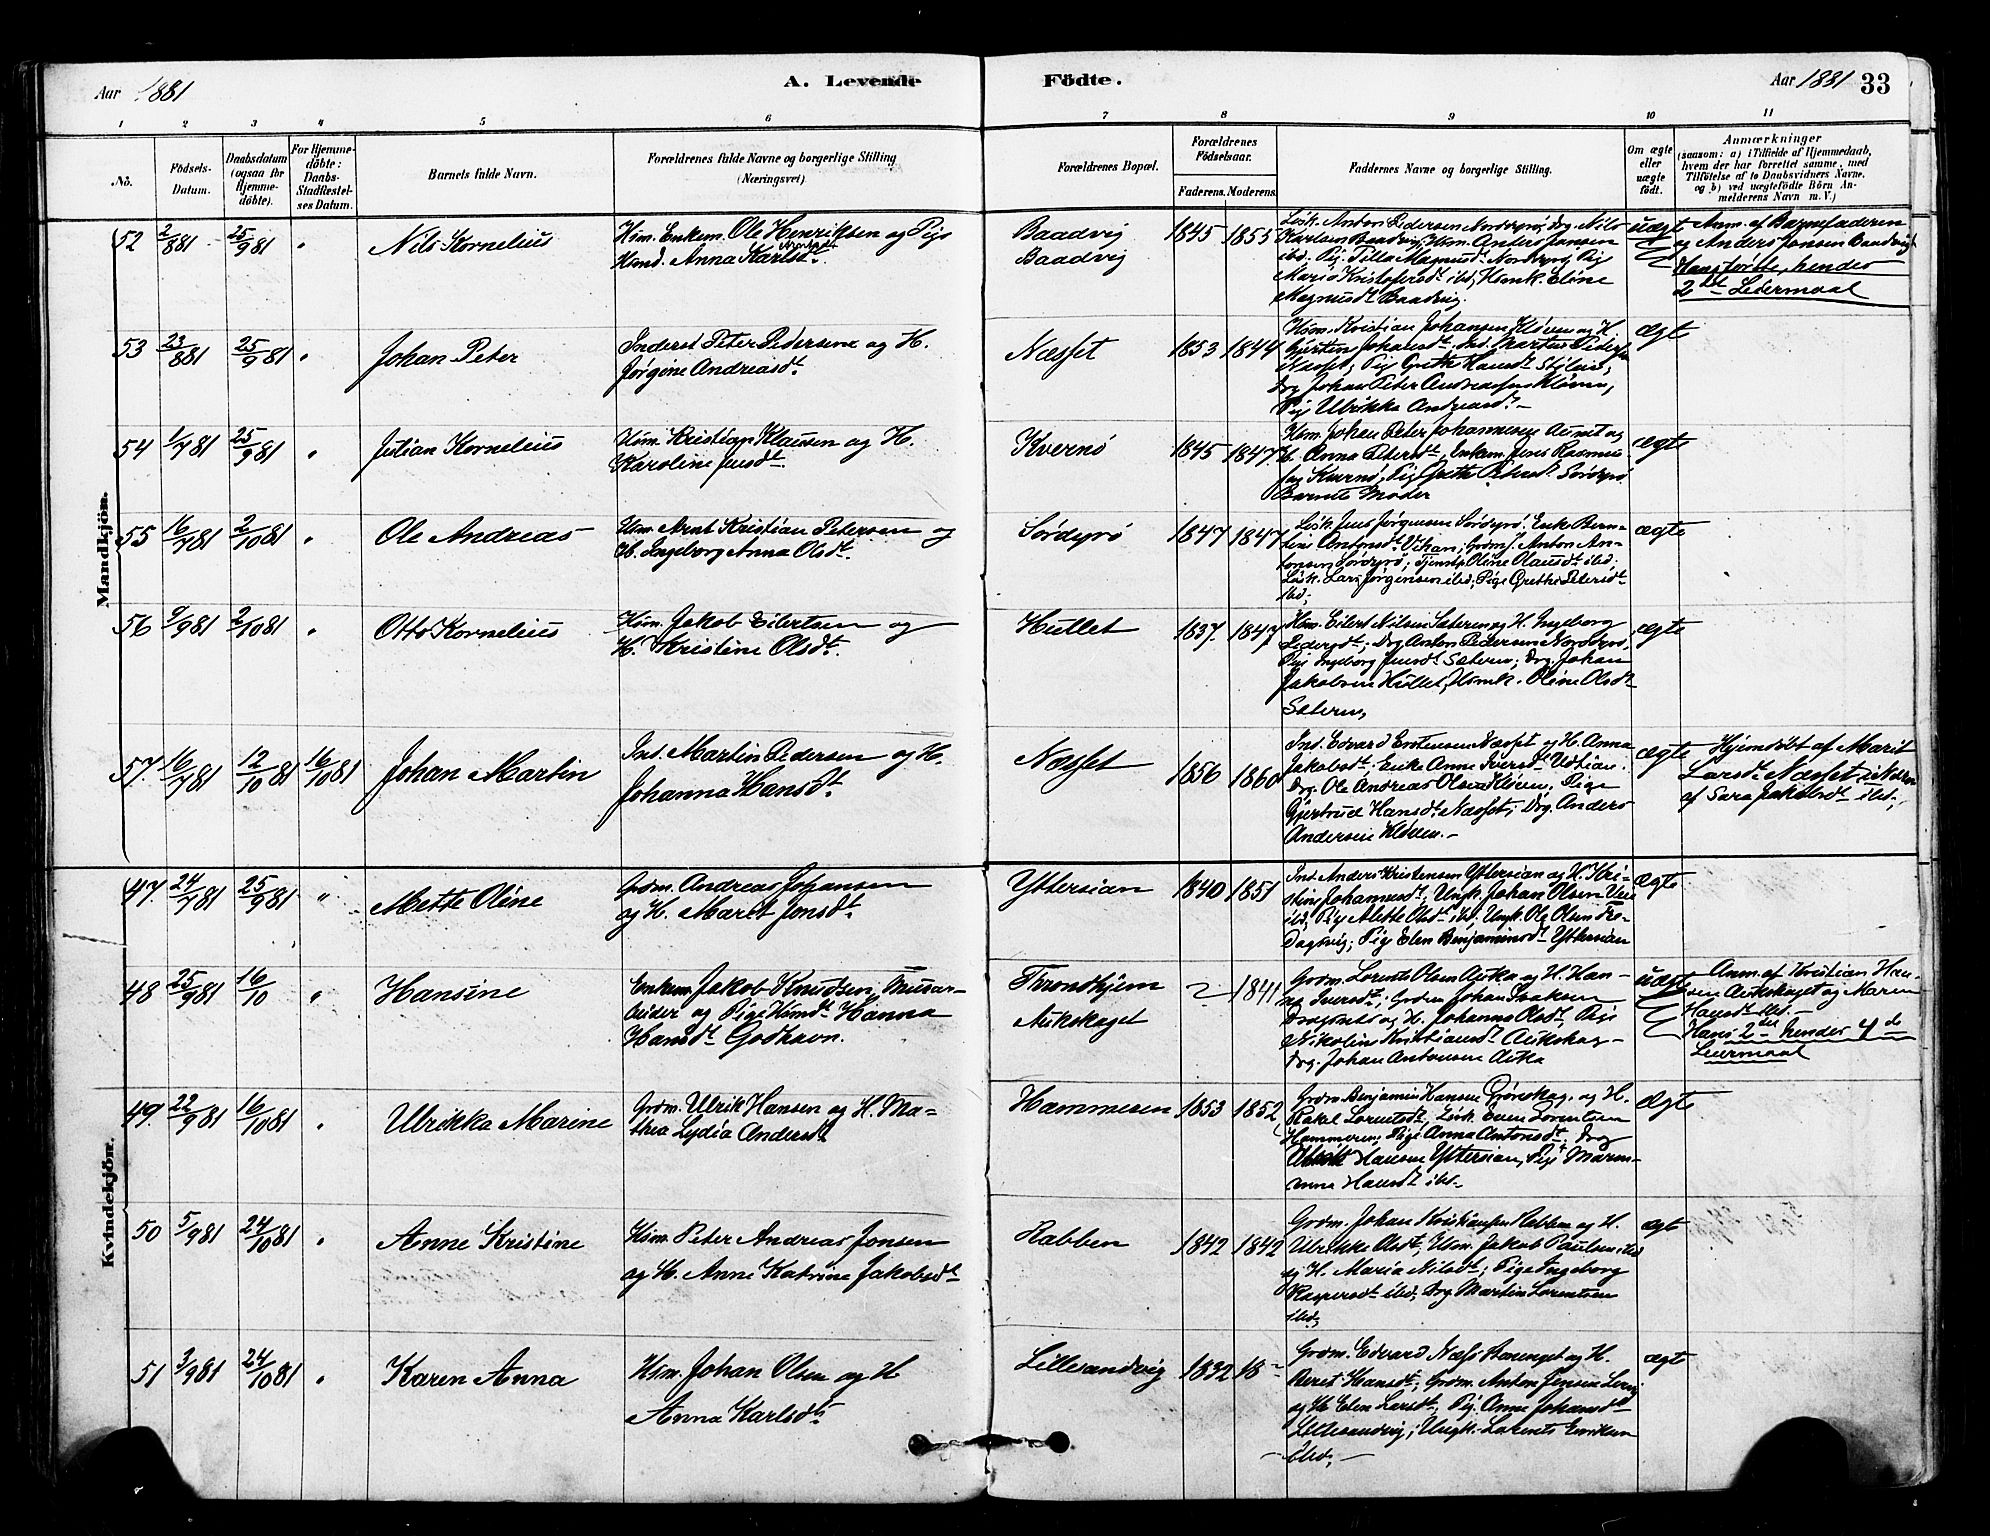 Aar 1881
A. Levende
Födte.
Aar 1881 33
1 2 3 4 5 6 7 8 9 10 11
No.
Födsels-
Datum.
Daabsdatum
(ogsaa for
Hjemme-
döbte).
For Hjemme-
döbte:
Daabs-
Stadfæstel-
ses Datum.
Barnets fulde Navn.
Forældrenes fulde Navne og borgerlige Stilling
(Næringsvei).
Forældrenes Bopæl.
Forældrenes
Födselsaar.
Faderens. Moderens.
Faddernes Navne og borgerlige Stilling.
Om ægte
eller
uægte
födt.
Anmærkninger
(saasom: a) i Tilfælde af Hjemmedaab,
hvem der har forrettet samme, med
Tilföielse af to Daabsvidners Navne,
og b) ved uægtefödte Börn An-
melderens Navn m. V.)
Mandkjön.
52 2/881 25/981 " Nils Kornelius
Hsm. Enkem. Ole Henriksen og Pige
Hsmd. Anna Karlsdt.
Baadvig
Baadvig
1845 1855
Lösk. Anton Pedersen Nordyrö, Drg. Nils
Karlsen Baadvig, Hsm. Anders Jonsen
ibd. Pig. Pilla Magnusdt. Nordyrö, Pig
Maria Kristofersdt ibd, Hsmk. Eline
Magnusdt Baadvig.
uægt
Anm. af Barnefaderen
og Anders Jonsen Baadvig
Hans förste, hendes
2dt Leiermaal
53 23/881 25/981 " Johan Peter
Inderst Peter Pedersen og H.
Jörgine Andreasdt.
Næsset
1853 1844
Hsm. Kristian Johansen Klöven og H.
Gjertine Johansdt. Ind. Martin Peders
Næsset, Pig Grethe Hansdt
Drg Johan Peter Andreassen Klöven,
Pig Ulrikka Andreasdt. -
ægte
54 1/781 25/981 " Julian Kornelius
Hsm. Kristian Klausen og H.
Karoline Jensdt.
Kvernö
1845 1847.
Hsm. Johan Peter Johannesen Aunet og
H. Anna Petersdt, Enkem. Jens Rasmus
sen Kvernö, Pig Grethe Petersdt Sördyrö
Barnets Moder
ægte
55 16/781 2/1081 " Ole Andreas
Hsm. Arnt Kristian Petersen og
H. Ingeborg Anna Olsdt.
Sördyrö
1847 1847
Lösk. Jens Jörgensen Sördyrö. Enke Bern-
tine Antonsdt. Vikan; Grdm. Anton An-
tonsen Sördyrö; Tjenstp. Oline Olausdt. ibd;
Lösk. Lars Jörgensen ibd; Pige Grethe Petersdt
ibd;
ægte
56 9/981 2/1081 " Otto Kornelius
Hsm. Jakob Eilertsen og
H. Kristine Olsdt.
Hullet
1837. 1847
Hsm. Eilert Nilsen Sæteren og H. Ingeborg
Pedersdt; Drg Anton Pedersen Nordyrö,
Pig Ingeborg Jensdt Sæteren; Drg. Johan
Jakobsen Hullet, Hsmk. Oline Olsdt
Sæteren,
ægte
57. 16/781 12/1081 16/1081 Johan Martin
Ind. Martin Pedersen og H.
Johanna Hansdt.
Næsset
1856 1860
Ind. Edvard Erntsen Næsset og H. Anna
Jakobsdt. Enke Anne Iversdt Udtian.
Drg. Ole Andreas Olsen Klöven; Pige
Gjertrud Hansdt. Næsset; Drg. Anders
Andersen Klöven. -
ægte
Hjemdöbt af Marit
Larsdt. Næsset
af Sara Jakobsdt ibd.,
Kvindekjön.
47. 24/781 25/981 " Mette Oline
Grdm. Andreas Johansen
og H. Maret Jonsdt.
Yttersian
1840 1851
Ind. Anders Kristensen Yttersian og H. Kri-
stine Johannesdt, Ungk. Johan Olsen
ibd, Pige Alette Olsdt ibd. Ungk. Ole Olsen
Dagsvig; Pige Elen Benjaminsdt Yttersian
ægte
48 25/981 16/10 " Hansine
Enkem. Jakob Knudsen, Musar-
beider og Pige Hsmdt. Hanna
Hansdt Godhavn.
Throndhjem
Aukskaget
? 1841
Grdm. Lorents Olsen Auka og H. Han-
na Iversdt; Grdm. Johan Isaksen
Dragsnes og H. Johanna Olsdt, Pige
Nikoline Kristiansdt Aukskag-
Drg. Johan Antonsen Auka
uægte
Anm. af Kristian Han-
sen Aukskaget og Maren
Hansdt ibd. -
Hans 2den hendes 4de
Leiermaal
49. 22/981 16/1081 " Ulrikka Marine
Grdm. Ulrik Hansen og H. Ma-
thea Lydia Andersdt
Hammeren
1853 1852
Grdm. Benjamin Hansen Grönskag og H.
Rakel Lorentsdt; Lösk. Even Lorentsen
Hammeren; Pige Anna Antonsdt. Drg
Hansen Yttersian, Pige Maren-
anna Hansdt ibd. -
ægte
50 5/981 24/1081 " Anne Kristine
Hsm. Peter Andreas Jonsen
og H. Anne Katrine Jakobsdt
Rabben
1842 1842
Grdm. Johan Kristiansen Rabben og H.
Ulrikke Olsdt, Hsm. Jakob Paulsen ibd
og H. Maria Nilsdt; Pige Ingeborg
Kaspersdt ibd; Drg Martin Lorentsen
ibd;
ægt
51 3/981 24/1081 " Karen Anna
Hsm. Johan Olsen og H
Anna Karlsdt
Lillesandvig
1832 18-
Grdm. Edvard og H.
Beret Hansdt; Grdm. Anton Jensen
og H. Elen Larsdt; Pig. Anne Johansdt
Lillesandvig; Ungk. Lorents Eriksen
- ibd, -
ægt